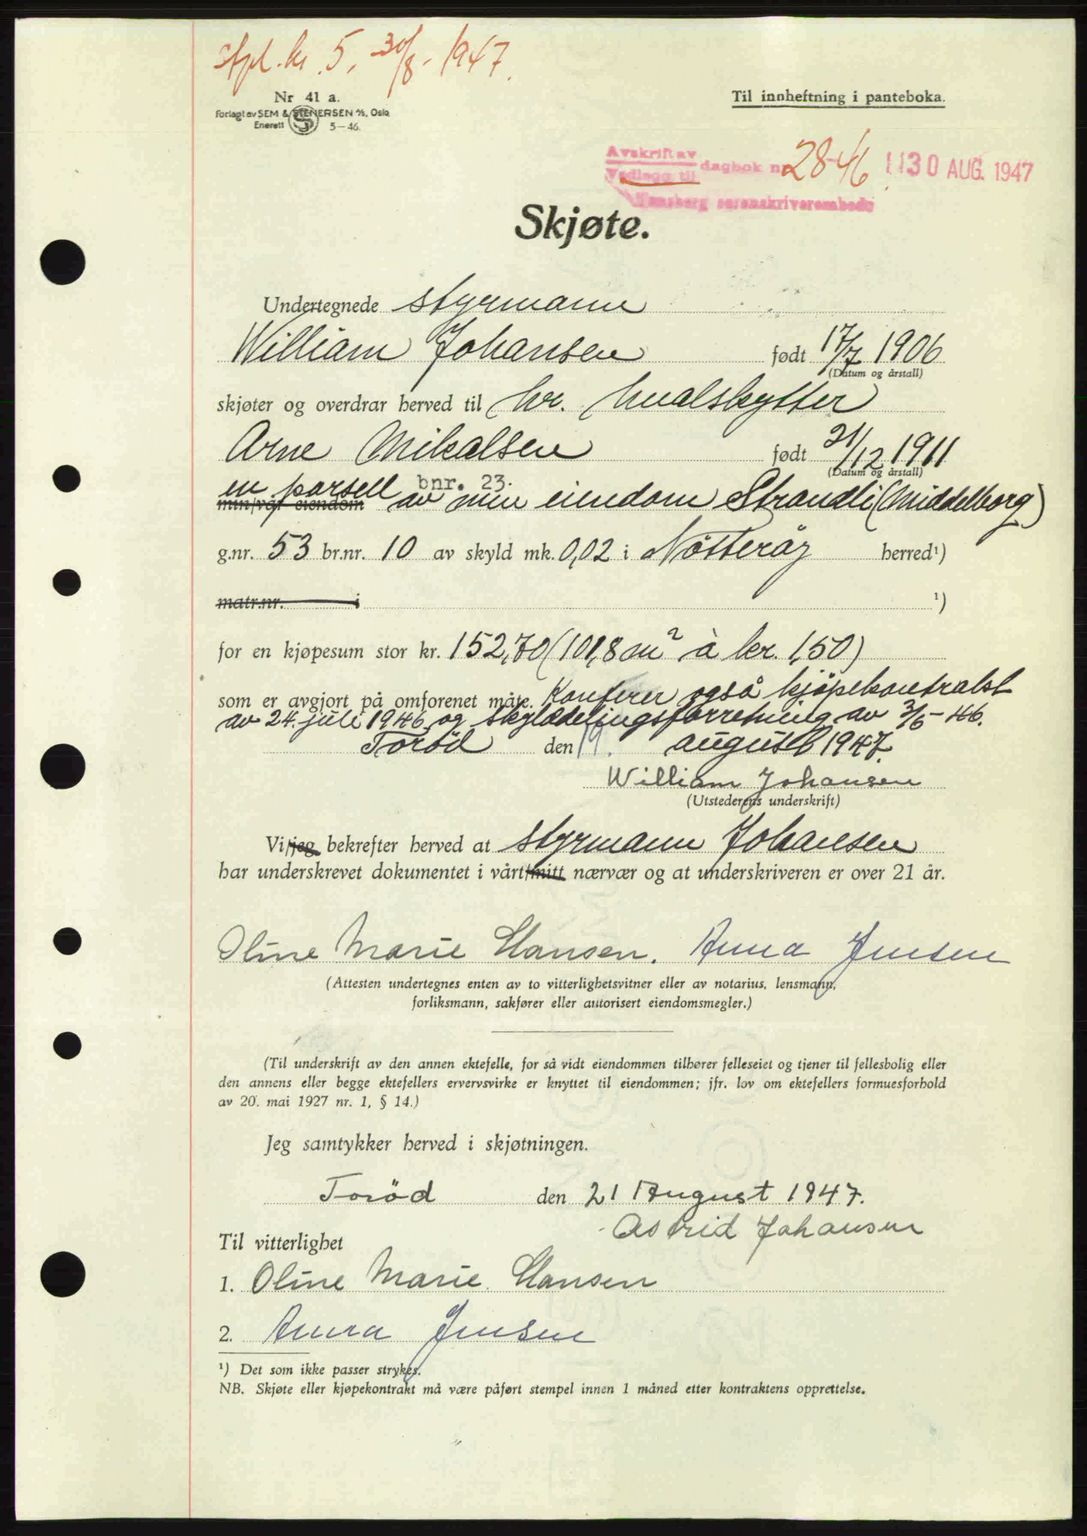 Stpl. kr. 5,- 30/8-1947.
Nr 41 a.
Forlagt av SEM & STENERSEN A/S, Oslo
Enerett 5-46.
Til innheftning i panteboka.
Avskrift av
Vedlegg til dagbok nr. 2846 30 AUG. 1947
Tønsberg sorenskriverembede
Skjøte.
Undertegnede styrmann
William Johansen født 17/7 1906
(Datum og årstall)
skjøter og overdrar herved til hr. hvalskytter
Arne Mikalsen født 21/12 1911
(Datum og årstall)
bnr. 23.
en parsell av min eiendom Strandli (Middelborg)
min/vår eiendom
g.nr. 53 br.nr. 10 av skyld mk. 0,02 i Nøtterøy herred¹)
matr.nr. i ¹)
for en kjøpesum stor kr. 152,70 (101,8 m² à kr. 1,50)
som er avgjort på omforenet måte. Konferer også kjøpekontrakt
av 24. juli 1946 og skylddelingsforretning av 3/6-46.
Torød den 19. august 1947.
William Johansen
(Utstederens underskrift)
Vi/jeg bekrefter herved at styrmann Johansen
har underskrevet dokumentet i vårt/mitt nærvær og at underskriveren er over 21 år.
Oline Marie Hansen. Anna Jensen
(Attesten undertegnes enten av to vitterlighetsvitner eller av notarius, lensmann,
forliksmann, sakfører eller autorisert eiendomsmegler.)
(Til underskrift av den annen ektefelle, for så vidt eiendommen tilhører felleseiet og tjener til fellesbolig eller
den annens eller begge ektefellers ervervsvirke er knyttet til eiendommen; jfr. lov om ektefellers formuesforhold
av 20. mai 1927 nr. 1, § 14.)
Jeg samtykker herved i skjøtningen.
Torød den 21 August 1947.
Astrid Johansen
Til vitterlighet
1. Oline Marie Hansen
2. Anna Jensen
¹) Det som ikke passer strykes.
NB. Skjøte eller kjøpekontrakt må være påført stempel innen 1 måned etter kontraktens opprettelse.